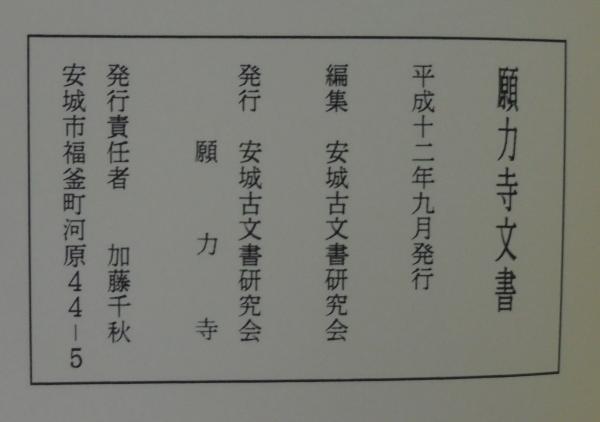 願力寺文書
平成十二年九月発行
編集　安城古文書研究会
発行　安城古文書研究会
願力寺
発行責任者　加藤千秋
安城市福釜町河原44-5